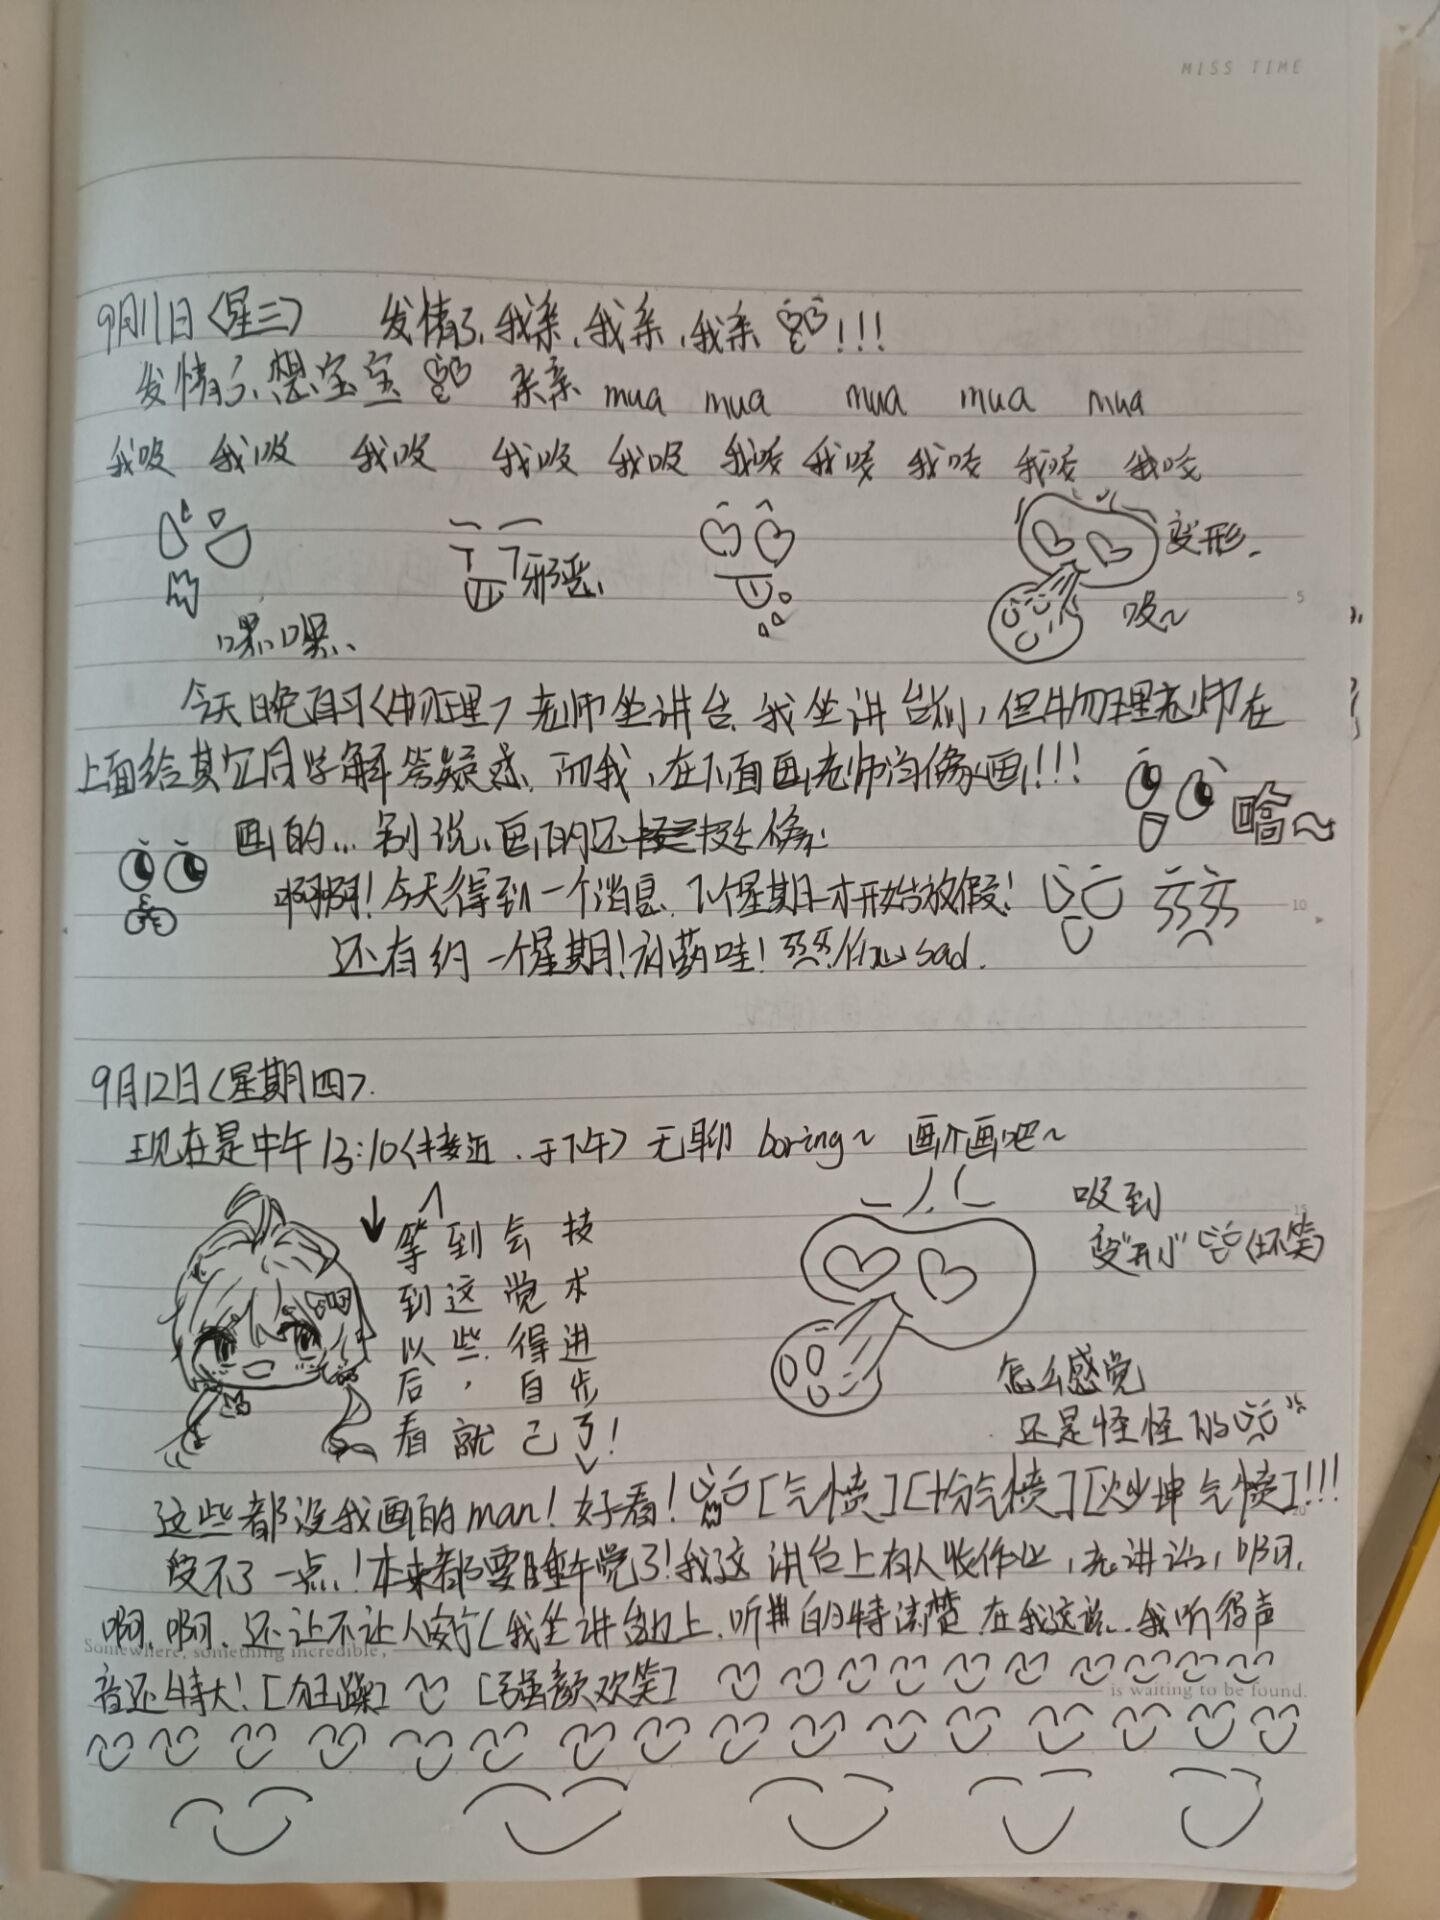 MISS TIME
9月11日〈星三〉 发情了，我亲，我亲，我亲!!!
发情了，想宝宝 亲亲 mua mua mua mua mua
我吸 我吸 我吸 我吸 我吸 我咬 我咬 我咬 我咬 我咬
变形.
邪恶、
吸～
嘿嘿、
5
今天晚自习〈物理〉老师坐讲台，我坐讲台侧，但物理老师在
上面给其它同学解答疑惑，而我，在下面画老师的像画!!!
画的... 别说，画的还挺像
啊啊！今天得到一个消息，下个星期一才开始放假！
10
还有约一个星期！ sad.
9月12日〈星期四〉.
现在是中午13:10〈接近，于下午〉无聊 boring～ 画个画吧～
等到以后看
到这些，就
会觉得自己
技术进步了！
吸到
变"形"（坏笑）
怎么感觉
还是怪怪的
这些都没我画的man！好看！[气愤][十分气愤][火少坤气愤]!!!
受不了一点！本来都要睡午觉了！我这讲台上有人收作业，先讲话，啊，
啊，啊，还让不让人（我坐讲台边上，听的特清楚 在我这说...我听得声
音还特大！[狂躁] [强颜欢笑]
Somewhere, something incredible,
is waiting to be found.